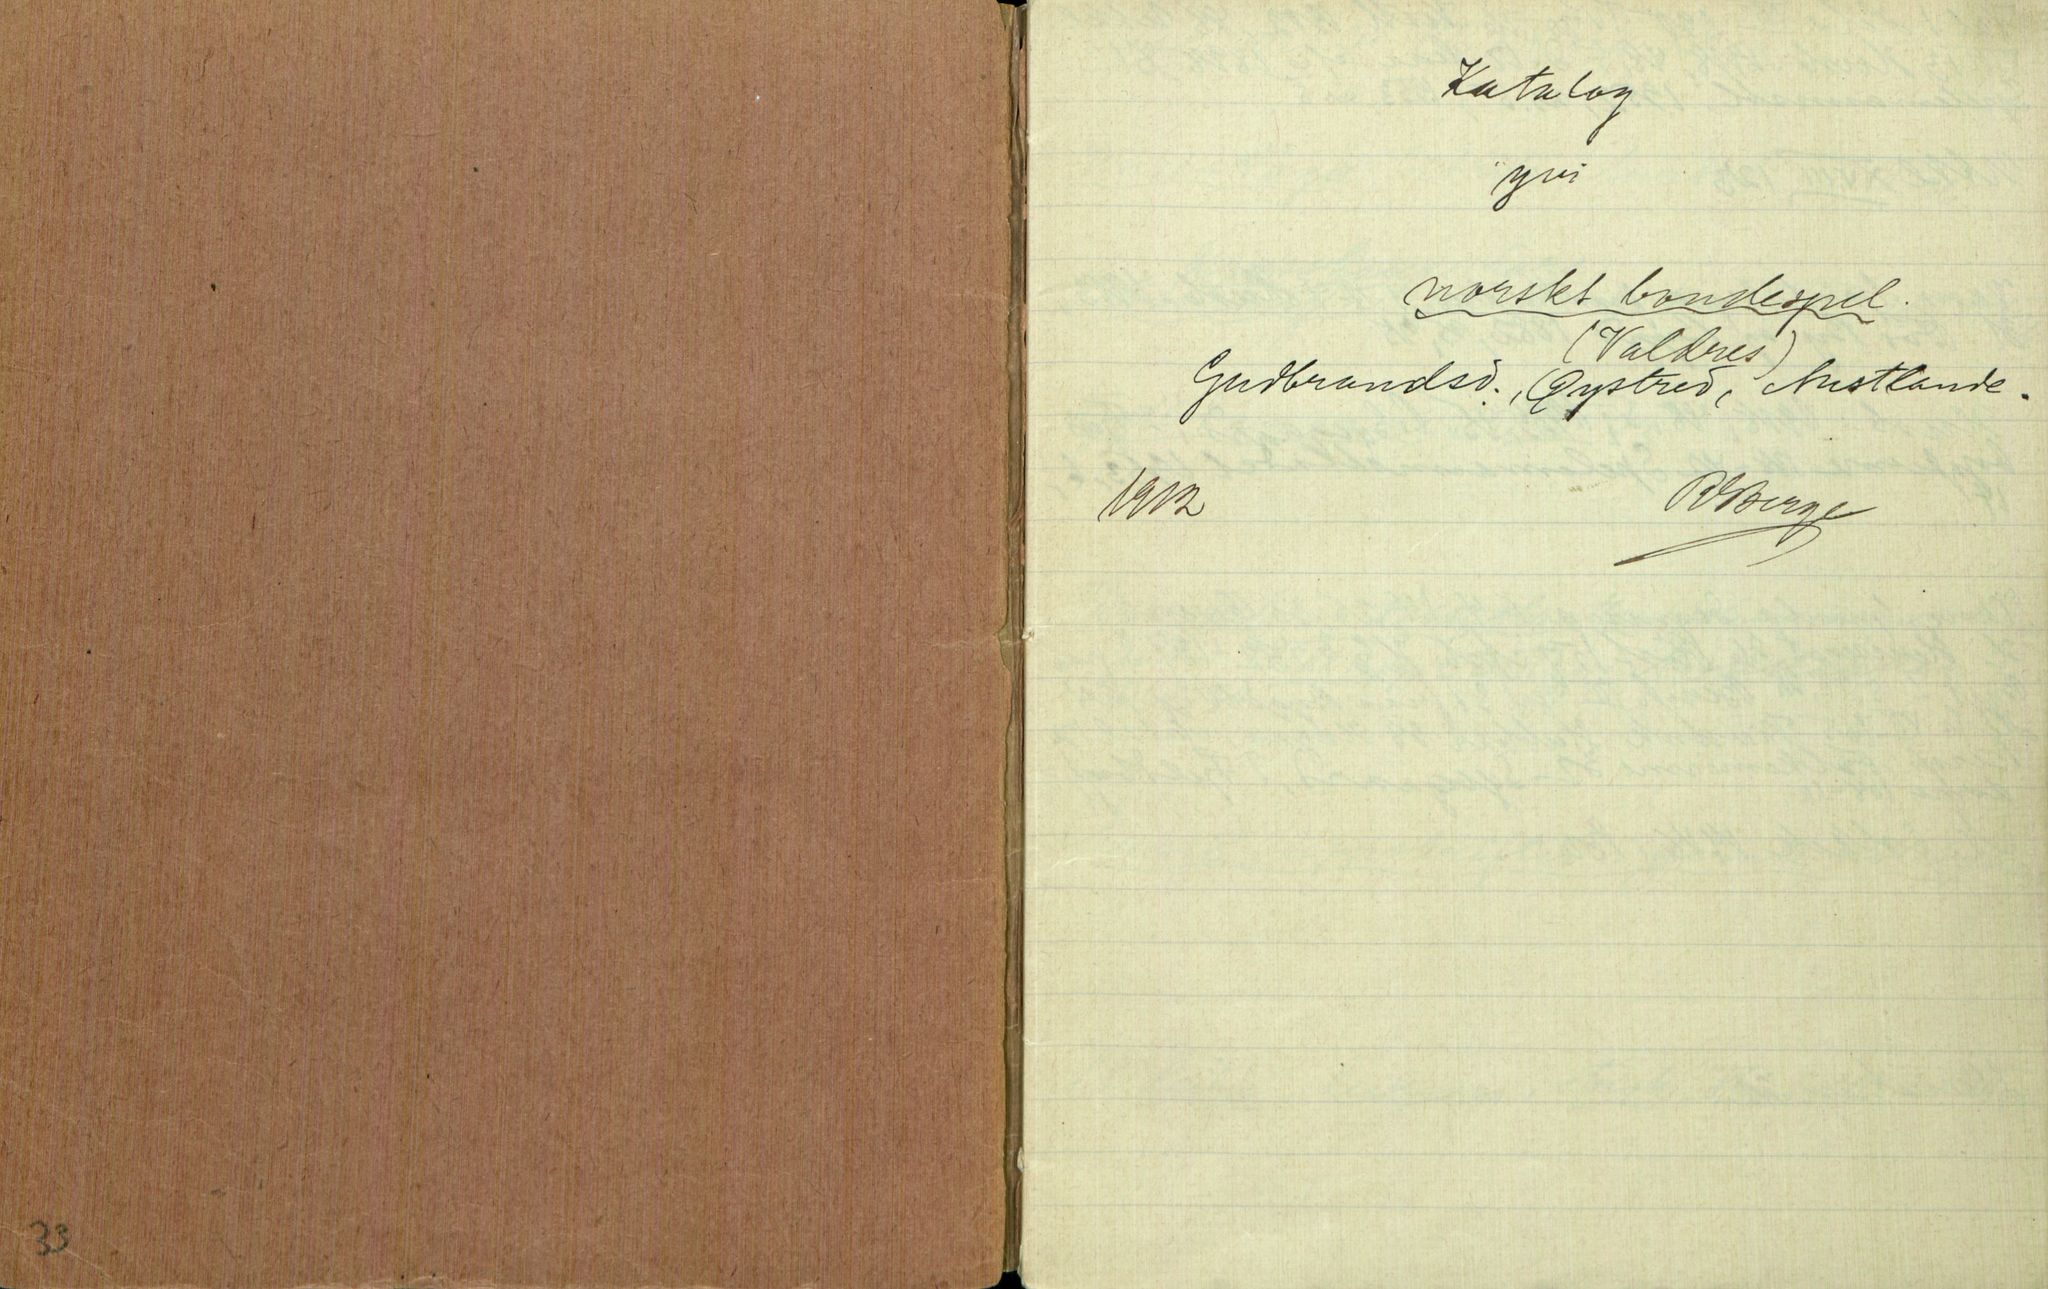 33
Katalog
yvi
norskt bondespel.
(Valdres)
Gudbrandsd., Øystred, Austlande.
1912
RBerge